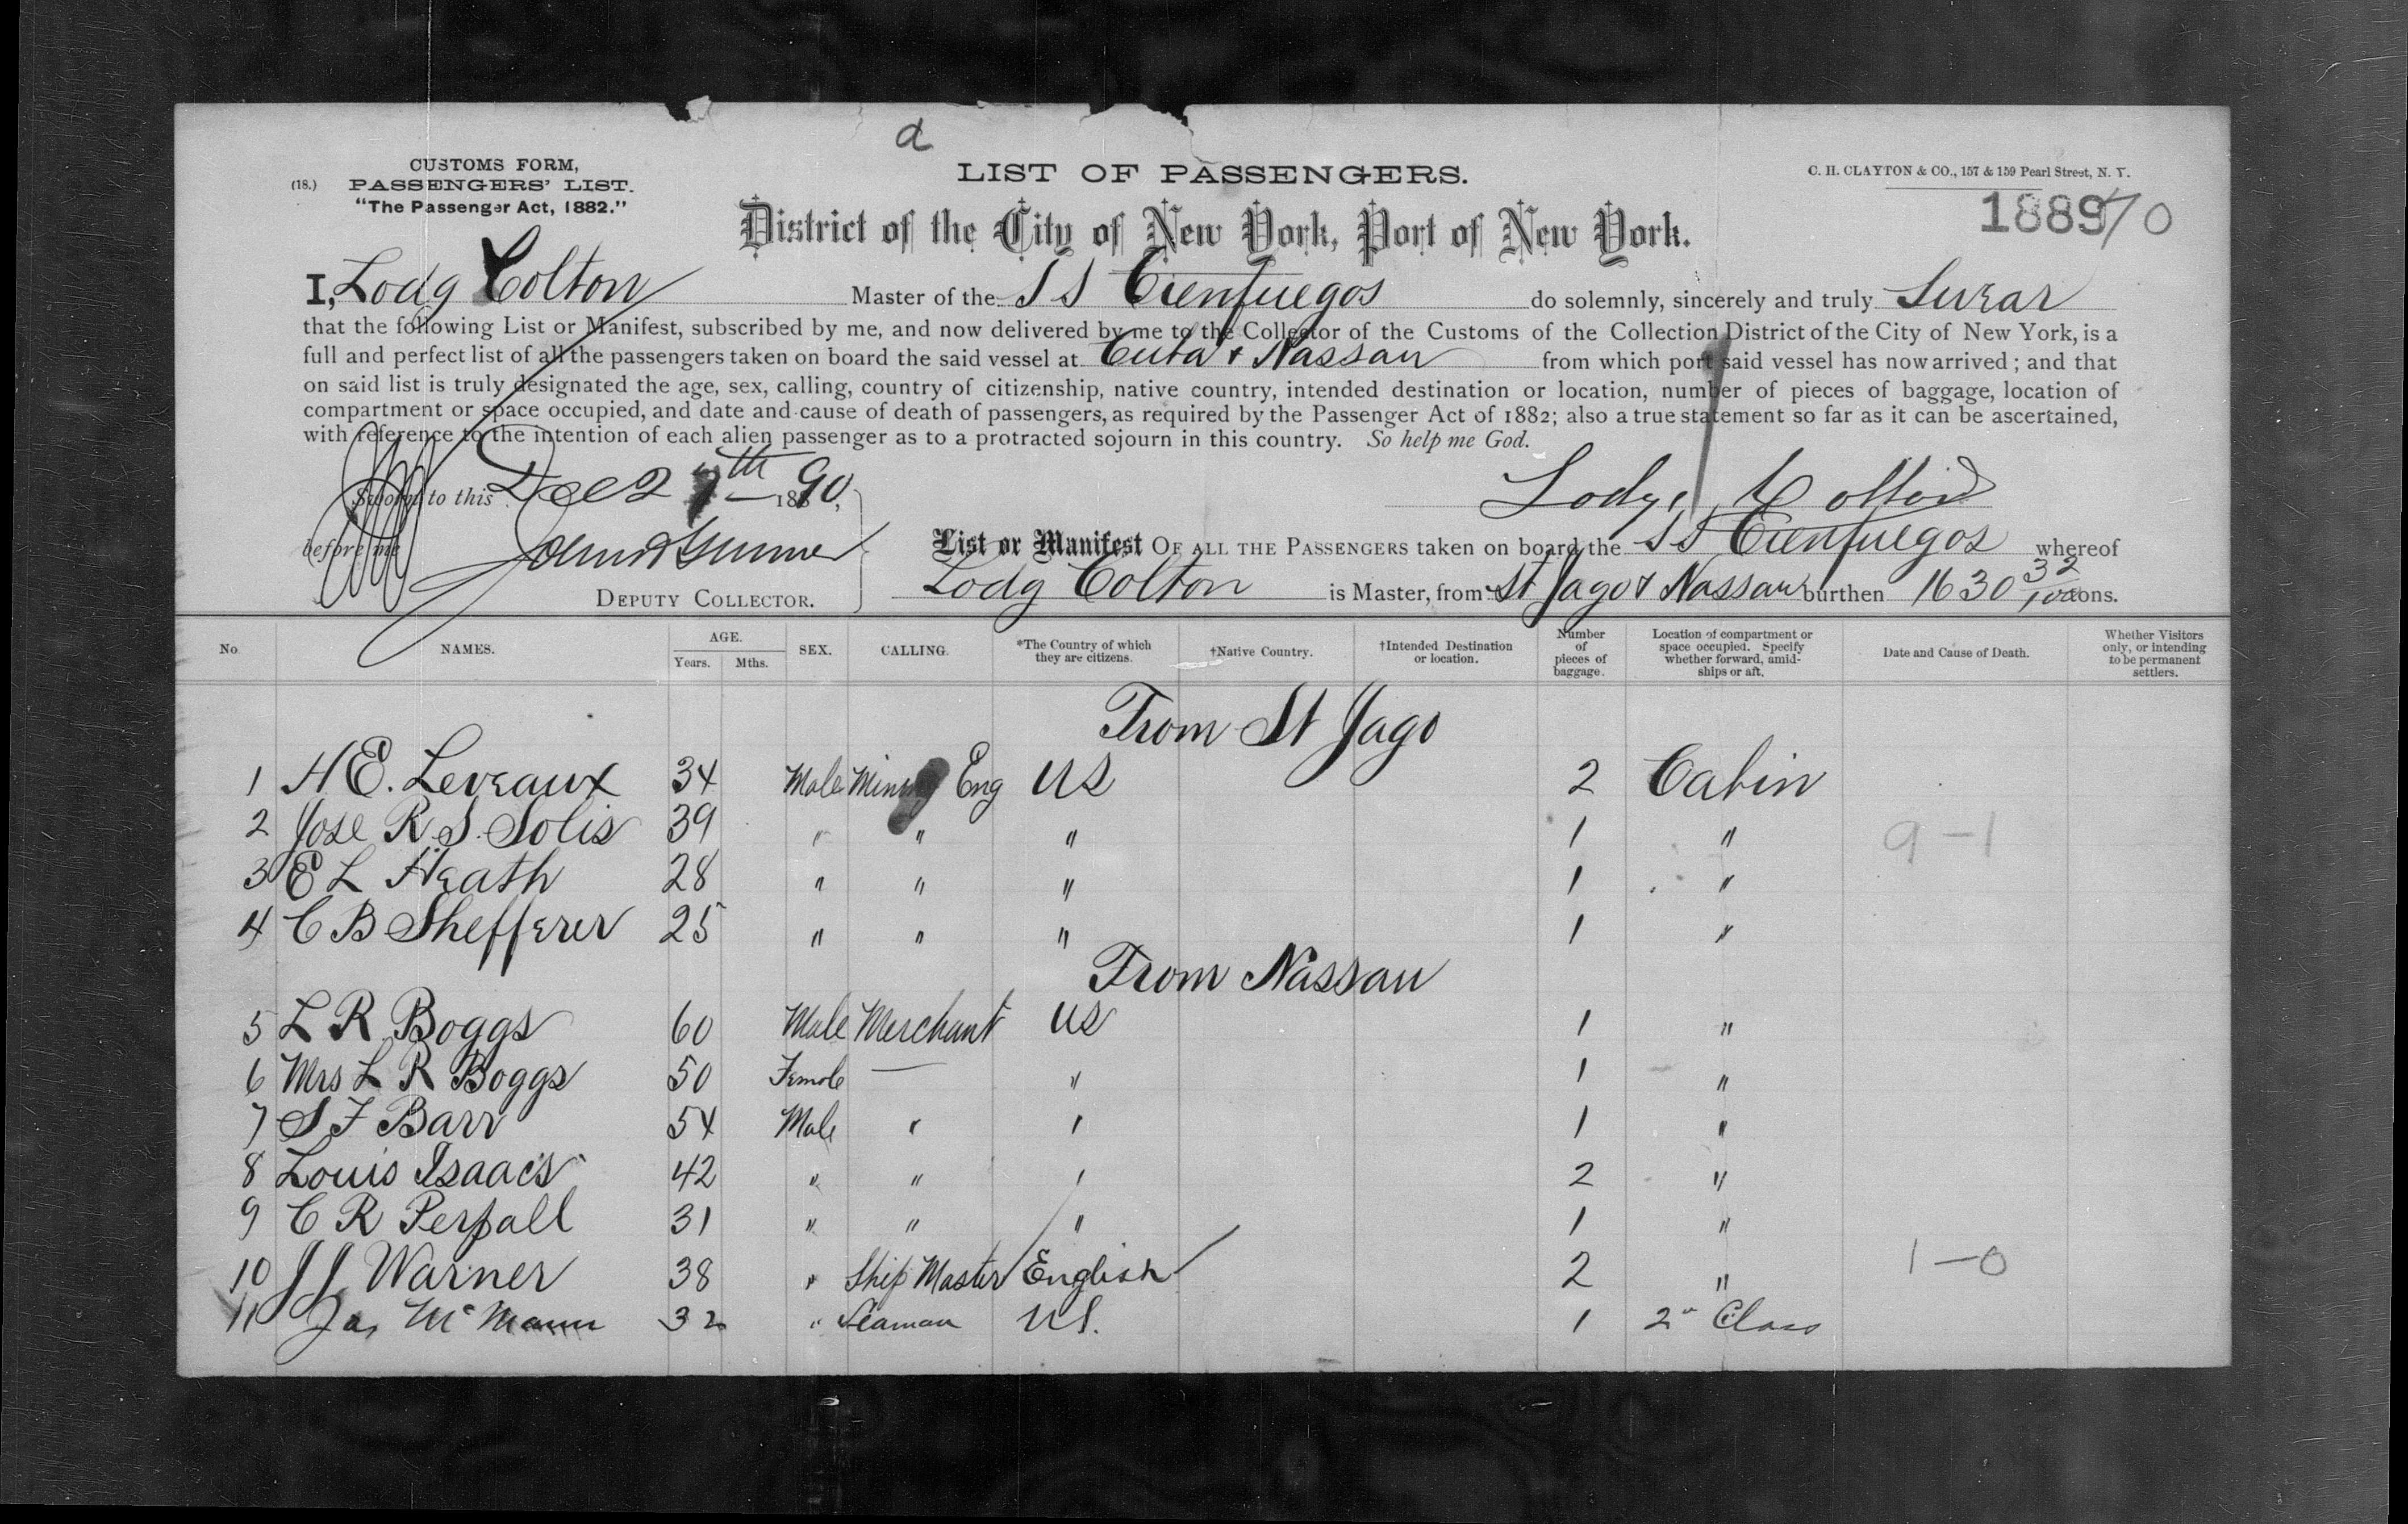 a
CUSTOMS FORM,
(18.) PASSENGERS' LIST.
"The Passenger Act, 1882."
LIST OF PASSENGERS.
C. H. CLAYTON & CO., 157 & 159 Pearl Street, N. Y.
1889
District of the City of New York, Port of New York.
I, Lodg Colton Master of the SS Cienfuegos do solemnly, sincerely and truly Swear
that the following List or Manifest, subscribed by me, and now delivered by me to the Collector of the Customs of the Collection District of the City of New York, is a
full and perfect list of all the passengers taken on board the said vessel at Cuba & Nassau from which port said vessel has now arrived; and that
on said list is truly designated the age, sex, calling, country of citizenship, native country, intended destination or location, number of pieces of baggage, location of
compartment or space occupied, and date and cause of death of passengers, as required by the Passenger Act of 1882; also a true statement so far as it can be ascertained,
with reference to the intention of each alien passenger as to a protracted sojourn in this country. So help me God.
Sworn to this Dec 27th 1890,
Lodg Colton
before me
DEPUTY COLLECTOR.
List or Manifest OF ALL THE PASSENGERS taken on board the SS Cienfuegos whereof
Lodg Colton is Master, from St Jago & Nassau burthen 1630 32/100 tons.
No NAMES. AGE. Years. Mths. SEX. CALLING. *The Country of which they are citizens. †Native Country. †Intended Destination or location. Number of pieces of baggage. Location of compartment or space occupied. Specify whether forward, amidships or aft. Date and Cause of Death. Whether Visitors only, or intending to be permanent settlers.
From St Jago
1 H E. Leveaux 34 Male Mining Eng US 2 Cabin
2 Jose R. S. Solis 39 " " " 1 " 9-1
3 E L Heath 28 " " " 1 "
4 C B Shefferer 25 " " " 1 "
From Nassau
5 L R Boggs 60 Male Merchant US 1 "
6 Mrs L R Boggs 50 Female — " 1 "
7 S F Barr 54 Male " " 1 "
8 Louis Isaacs 42 " " " 2 "
9 C R Perpall 31 " " " 1 "
10 J J Warner 38 " Ship Master English 2 " 1-0
11 Jas McMann 32 " Seaman US. 1 2" Class